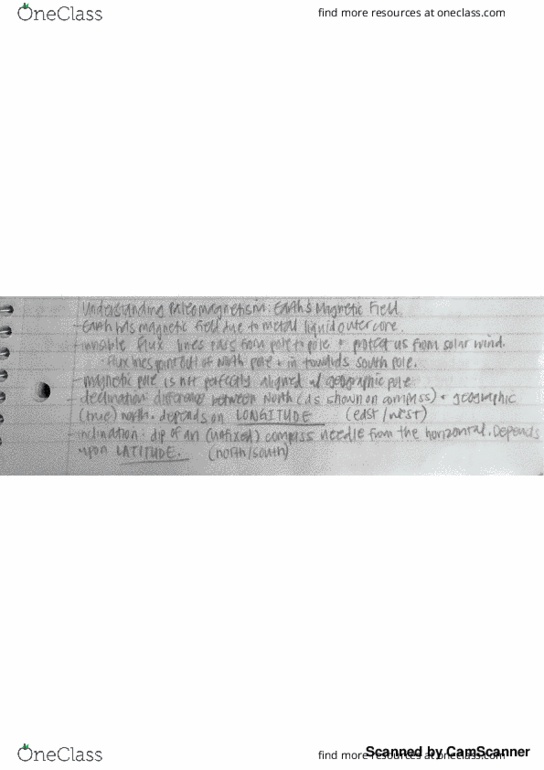 OneClass
find more resources at oneclass.com
Understanding Paleomagnetism: Earth's Magnetic Field
- Earth has magnetic field due to metal liquid outer core.
- invisible flux lines pass from pole to pole + protect us from solar wind.
· flux lines point out of North pole + in towards south pole.
- magnetic pole is not perfectly aligned w/ geographic pole
- declination: difference between North (as shown on compass) + geographic
(true) north. depends on LONGITUDE (east/west)
- inclination: dip of an (unfixed) compass needle from the horizontal. Depends
upon LATITUDE. (north/south)
OneClass
find more resources at oneclass.com
Scanned by CamScanner